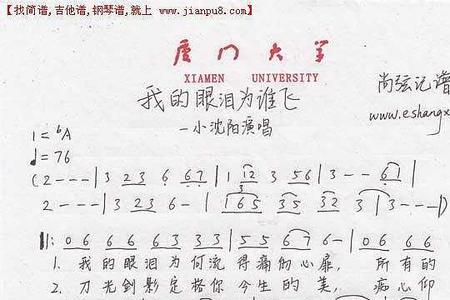 【找简谱,吉他谱,钢琴谱,就上 www.jianpu8.com】
厦门大学
XIAMEN UNIVERSITY
我的眼泪为谁飞
尚弦记谱
—小沈阳演唱
www.eshangx
1=♭A
♩=76
(2---|3 23 6 67|1 12 3 56|3--67|
2---|3 23 6-|165 35 32 3|3---)|
‖: 06 66 63 33|55 67 6-|06 66
1. 我的眼泪为何流 得痛彻心扉, 所有的
2. 刀光剑影定格你 今生的美, 痴心仰